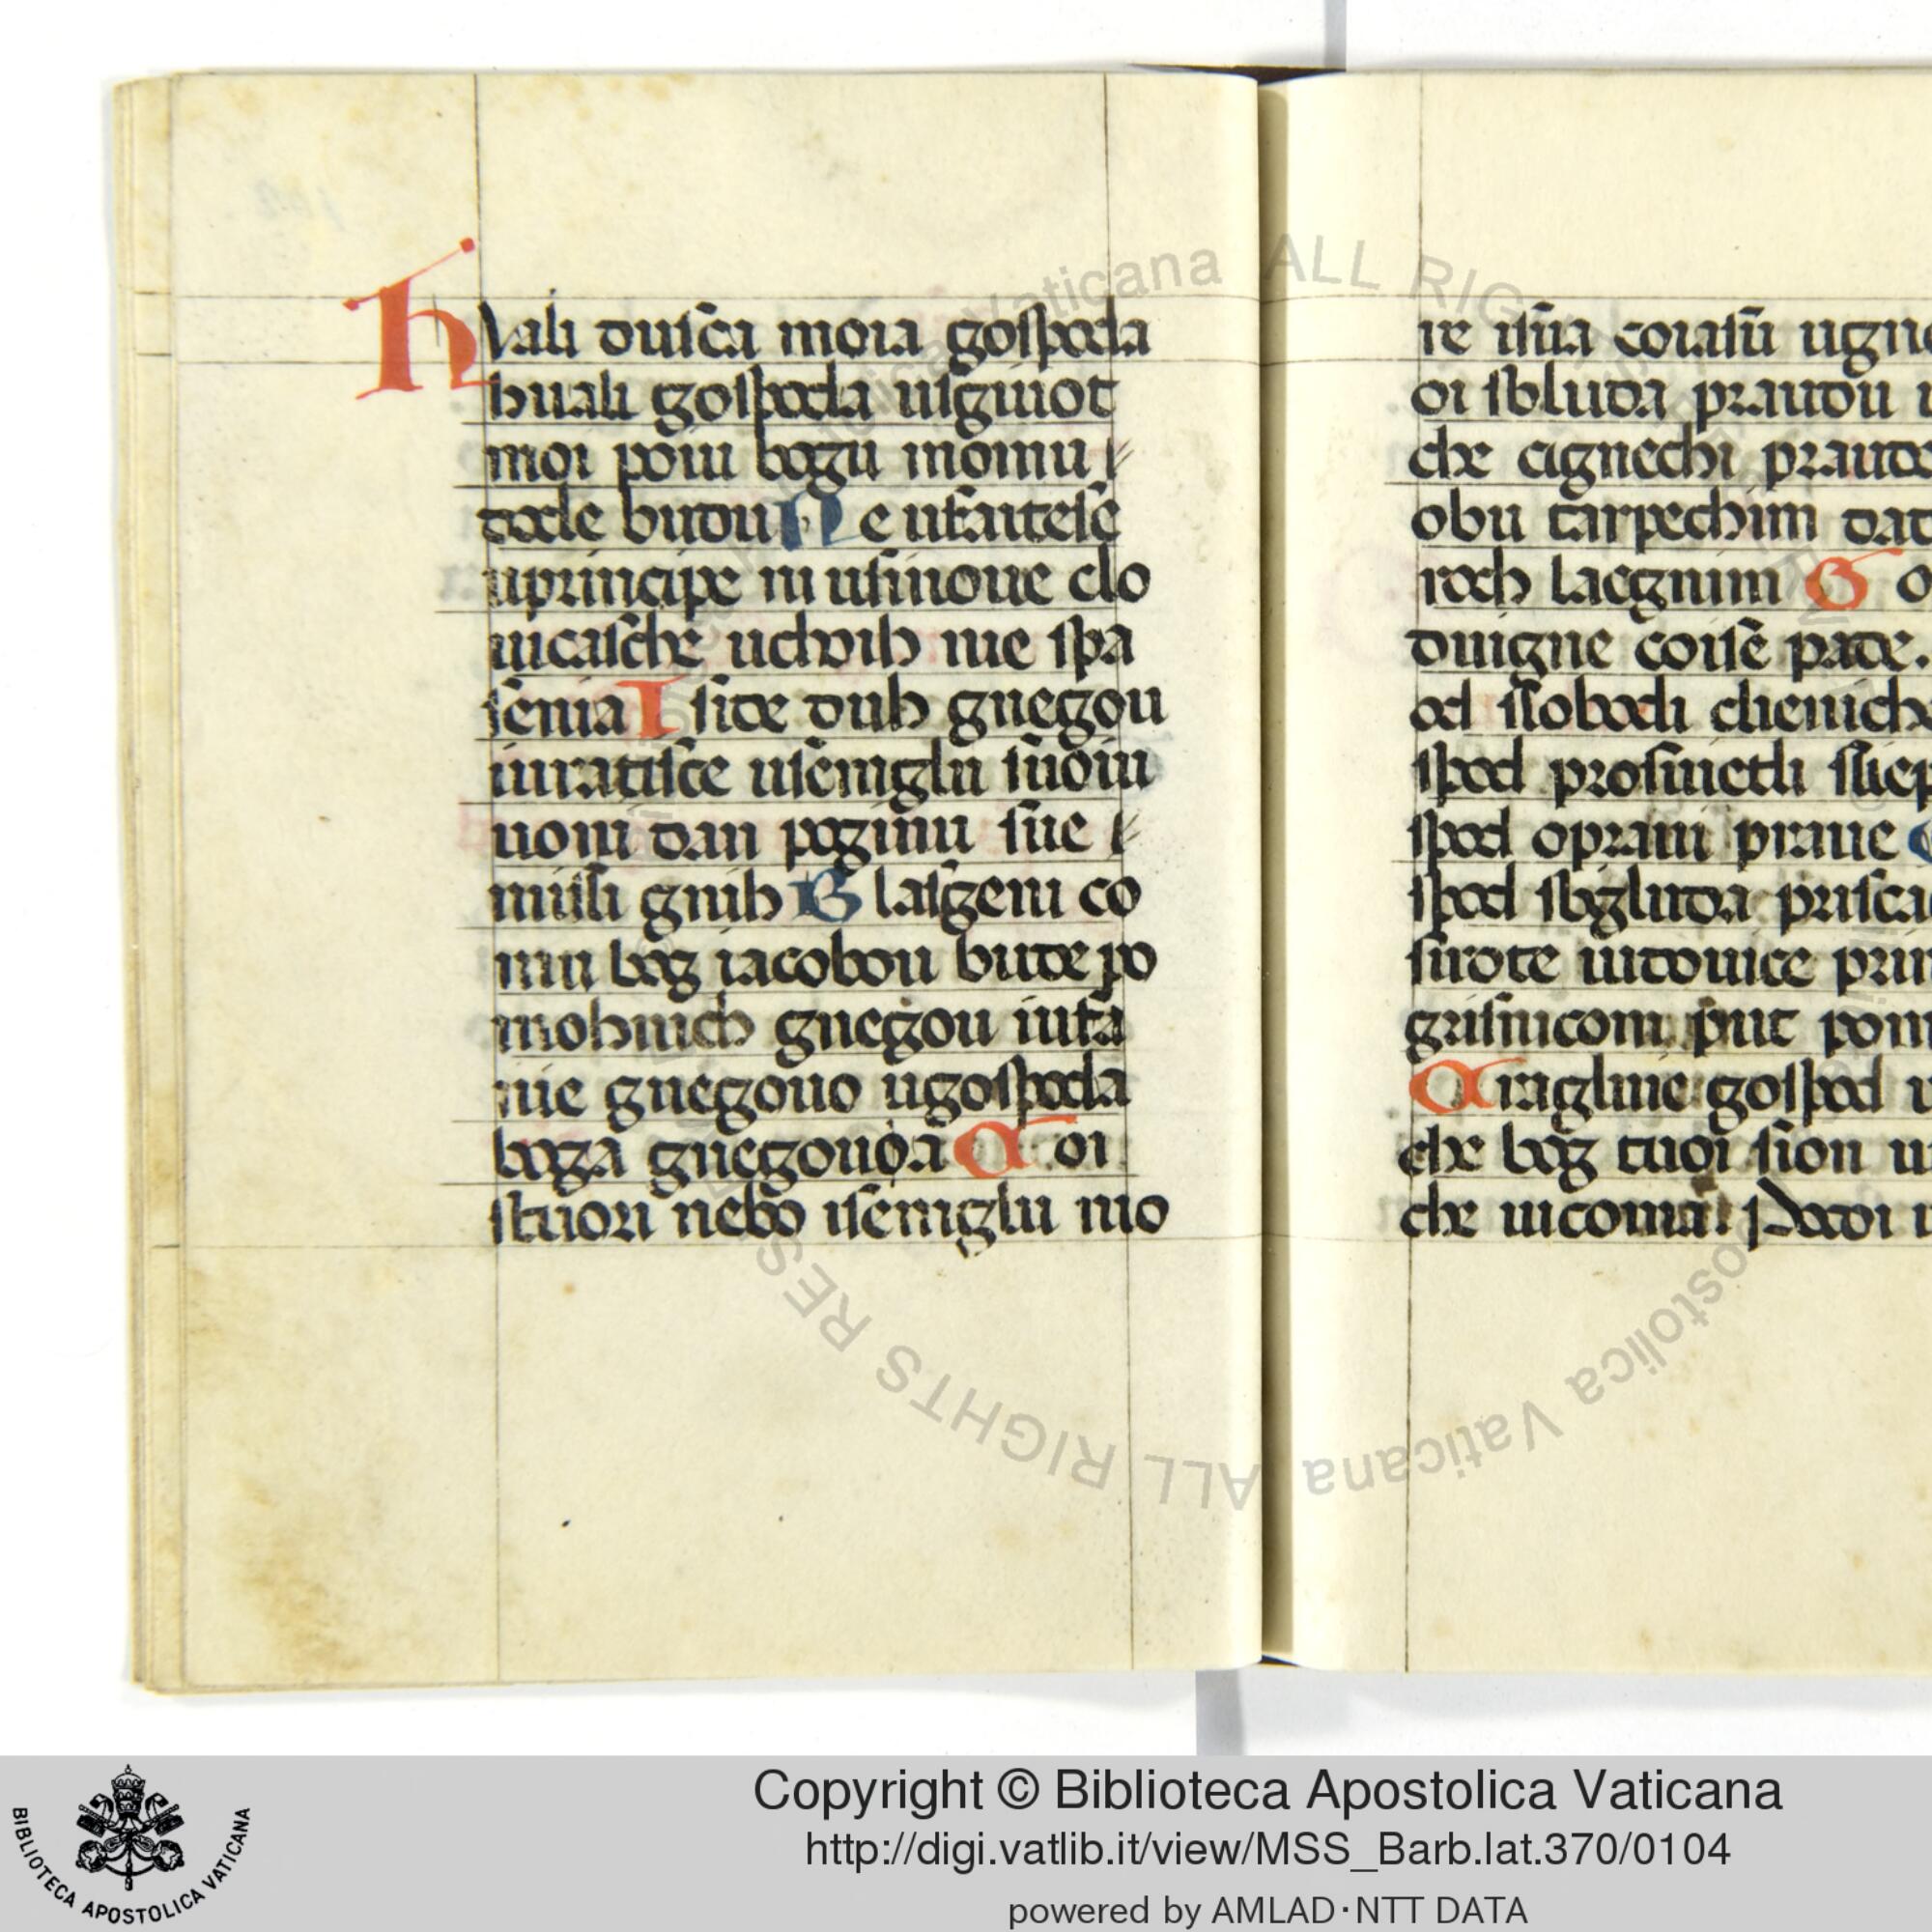 hvali duisca moia gospoda
huali gospoda uisgiuot
moi poiu bogu momu
docle budu Ne ufaitese
uprincipe ni usinoue clo
uicasche uchoih nie spa
senia Iside duh gnegou
iuratitsce usemglu suoiu
uoni dan poginu sue
misli gnih Blasgeni co
mu bog iacobou bude po
mohnich gnegou iufa
nie gnegouo ugospoda
boga gnegouoa Coi
stuori nebo isemglu mo
ie isua coiasu ugne
oi sbluda praudu
che cignechi praude
obu tarpechim dat
roch laegnim Go
duigne coise pade.
od slobodi clienich
spod prosuietli sliep
spod oprani praue
spod sbgluda prisca
sirote iudouice prim
grisnicom put pom
Craglue gospod u
che bog tuoi sion u
che uicoma. Pooi
Copyright © Biblioteca Apostolica Vaticana
http://digi.vatlib.it/view/MSS_Barb.lat.370/0104
powered by AMLAD·NTT DATA
BIBLIOTECA APOSTOLICA VATICANA